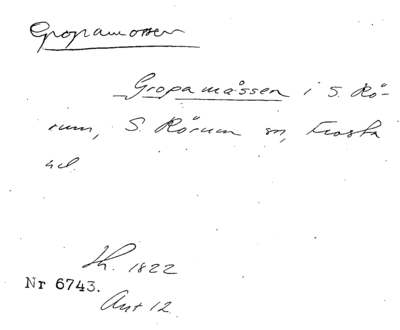 Gropamossen
Gropamåssen i S. Rö-
rum, S. Rörum sn, Frosta
hd.
Lh. 1822
Nr 6743.
Ant 12